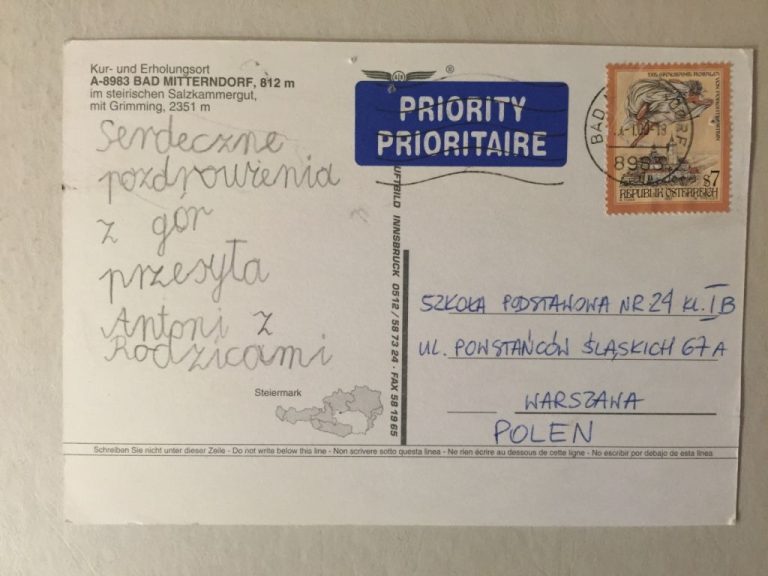 Kur- und Erholungsort
A-8983 BAD MITTERNDORF, 812 m
im steirischen Salzkammergut,
mit Grimming, 2351 m
Serdeczne
pozdrowienia
z gór
przesyła
Antoni z
Rodzicami
Steiermark
LUFTBILD INNSBRUCK 0512 / 58 73 24 · FAX 58 19 65
®
PRIORITY
PRIORITAIRE
BAD
8983
7
REPUBLIK ÖSTERREICH
SZKOŁA PODSTAWOWA NR 24 KL. I B
UL. POWSTAŃCÓW ŚLĄSKICH 67 A
WARSZAWA
POLEN
Schreiben Sie nicht unter dieser Zeile - Do not write below this line - Non scrivere sotto questa linea - Ne rien écrire au dessous de cette ligne - No escribir por debajo de esta línea